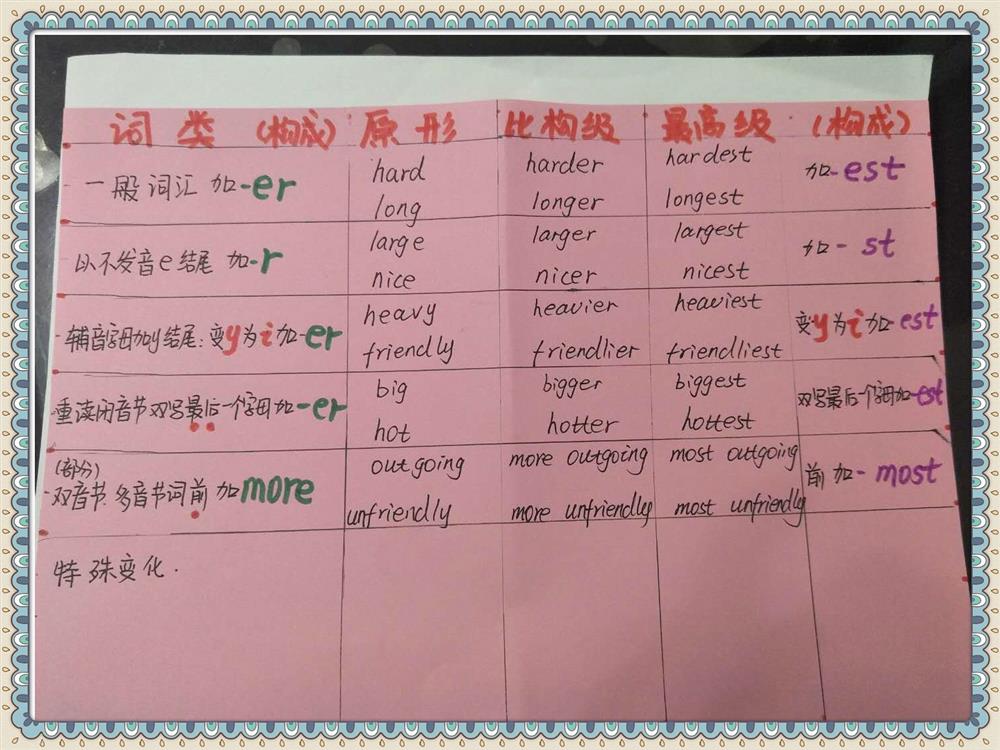 词类 (构成) 原形 比构级 最高级 (构成)
一般词汇 加-er hard harder hardest 加-est
long longer longest
以不发音e结尾 加-r large larger largest 加-st
nice nicer nicest
-辅音字母加y结尾:变y为i加-er heavy heavier heaviest 变y为i加-est
friendly friendlier friendliest
重读闭音节双写最后一个字母加-er big bigger biggest 双写最后一个字母加-est
hot hotter hottest
(部分)
-双音节.多音节词前加more outgoing more outgoing most outgoing 前加-most
unfriendly more unfriendly most unfriendly
特殊变化.